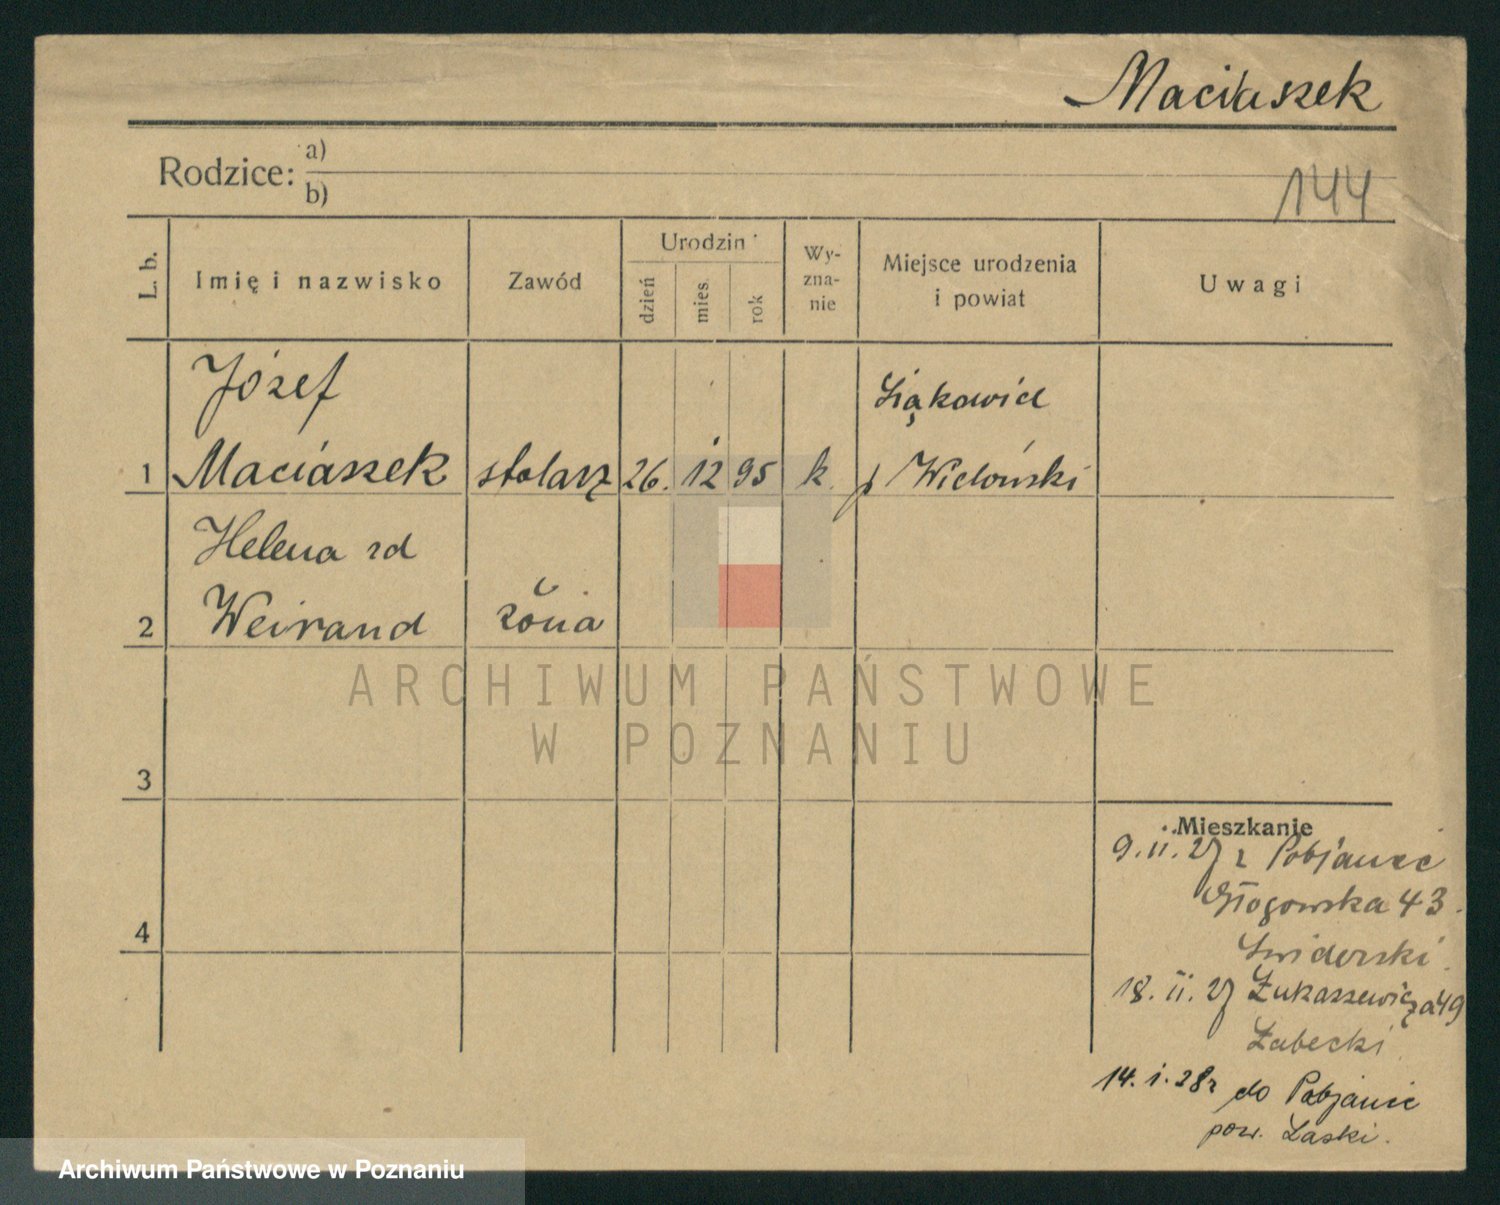 Maciaszek
Rodzice: a)
b)
144
L. b.
Imię i nazwisko
Zawód
Urodzin
dzień
mies.
rok
Wy-
zna-
nie
Miejsce urodzenia
i powiat
Uwagi
Józef
1 Maciaszek stolarz 26. 12 95 k.
p Wieloński
Helena zd
2 Weirand żona
3
4
Mieszkanie
9. II. 27 z Pobjanic
Głogowska 43.
Swiderski.
18. II. 27 Łukaszewicza 49
Łabecki
14. I. 28r do Pabjanic
pow. Łaski.
ARCHIWUM PAŃSTWOWE
W POZNANIU
Archiwum Państwowe w Poznaniu